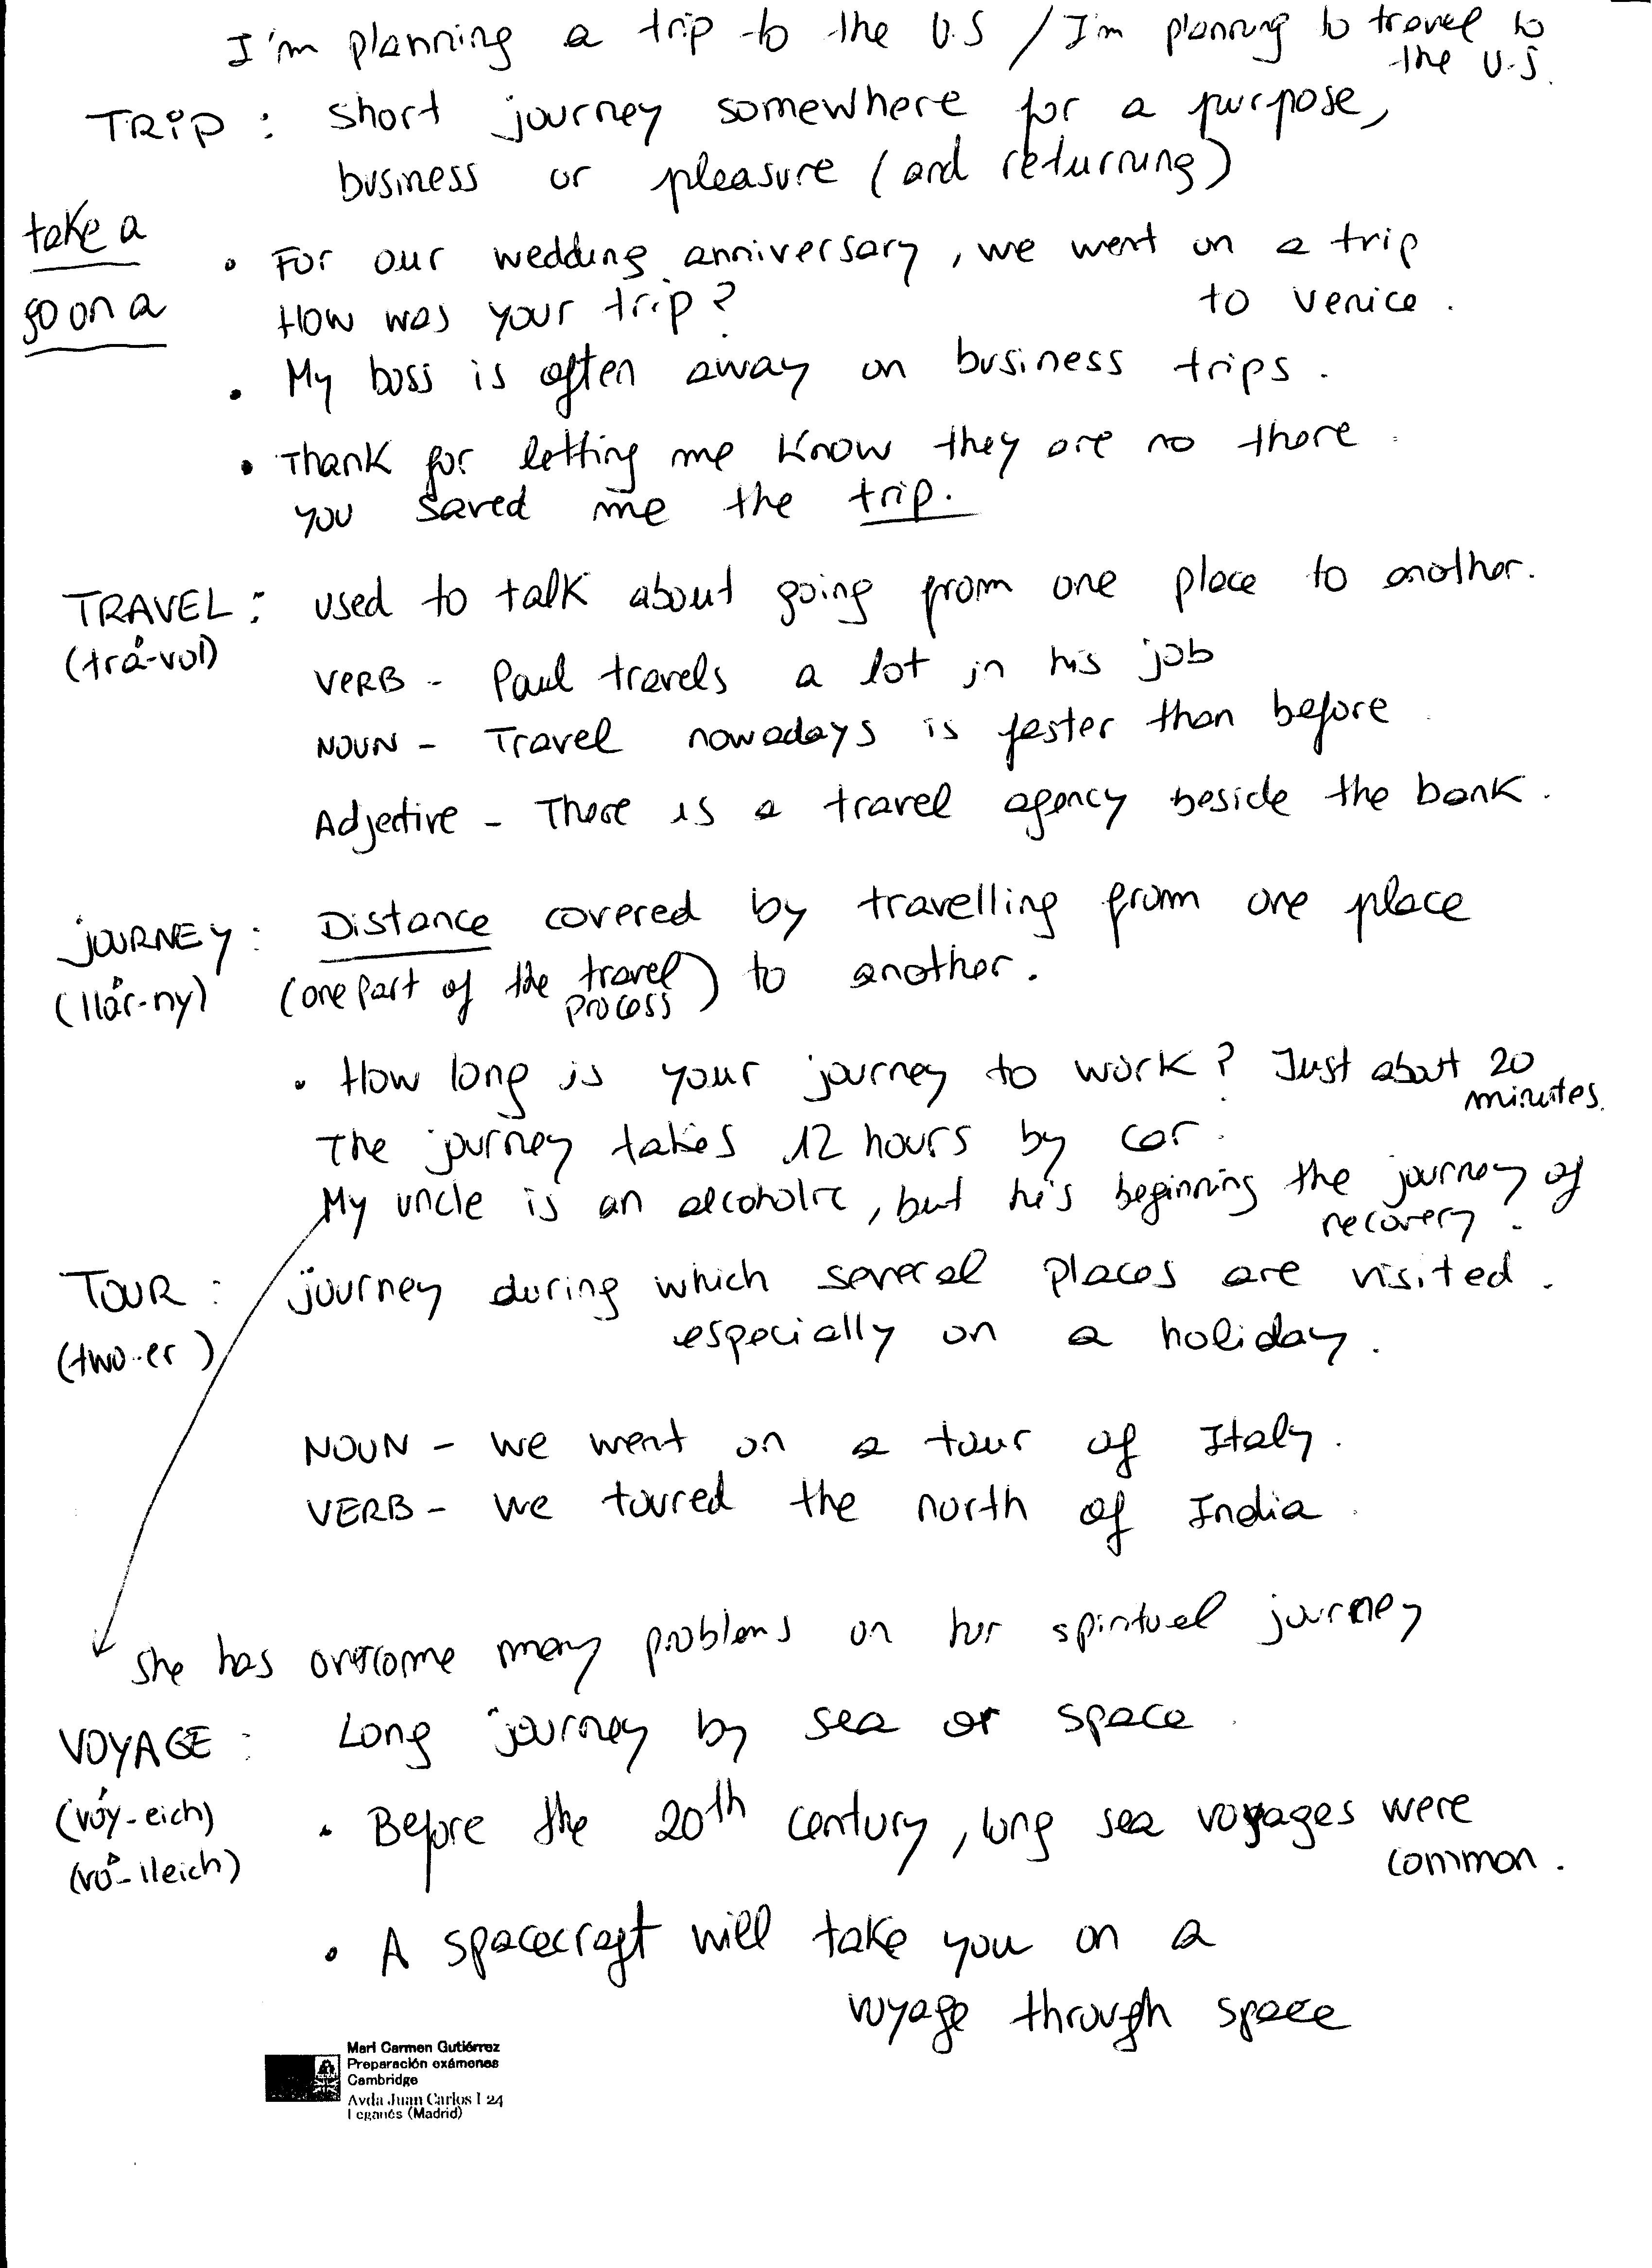 I'm planning a trip to the U.S / I'm planning to travel to
the U.S.
TRIP : short journey somewhere for a purpose,
business or pleasure (and returning)
take a
go on a
• For our wedding anniversary, we went on a trip
to Venice.
How was your trip?
• My boss is often away on business trips.
• Thank for letting me know they are no there.
you saved me the trip.
TRAVEL : used to talk about going from one place to another.
(trá-vol)
VERB - Paul travels a lot in his job
NOUN - Travel nowadays is faster than before.
Adjective - There is a travel agency beside the bank.
JOURNEY : Distance covered by travelling from one place
(llár-ny) (one part of the travel process) to another.
• How long is your journey to work? Just about 20
minutes.
The journey takes 12 hours by car.
My uncle is an alcoholic, but he's beginning the journey of
recovery.
TOUR : journey during which several places are visited.
(two-er) especially on a holiday.
NOUN - We went on a tour of Italy.
VERB - We toured the north of India.
She has overcome many problems on her spiritual journey
VOYAGE : Long journey by sea or space.
(vóy-eich)
(vó-lleich)
• Before the 20th century, long sea voyages were
common.
• A spacecraft will take you on a
voyage through space
Mari Carmen Gutiérrez
Preparación exámenes
Cambridge
Avda Juan Carlos I 24
Leganés (Madrid)